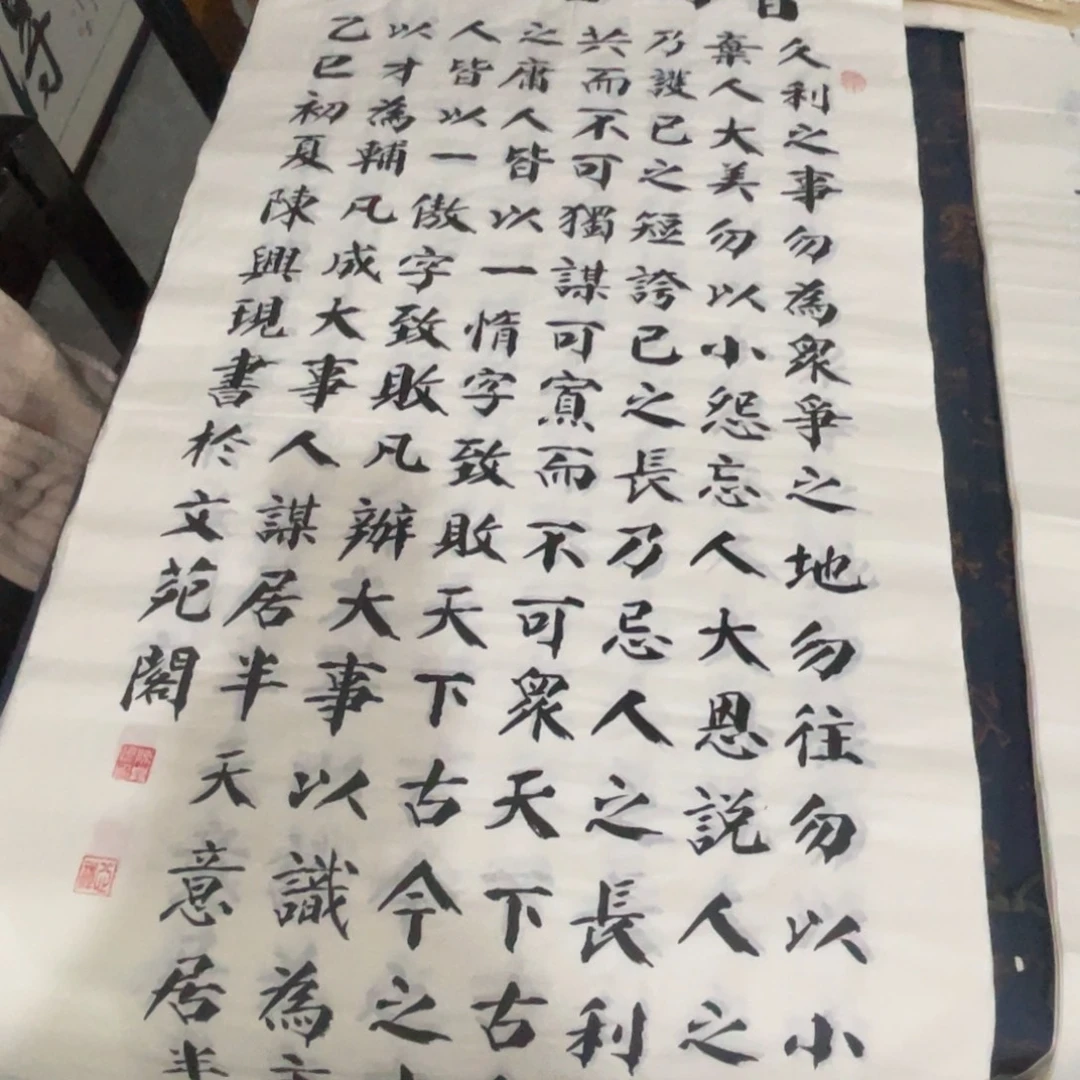 久利之事勿為眾爭之地勿往勿以小
棄人大美勿以小怨忘人大恩説人之
乃護己之短誇己之長乃忌人之長利
共而不可獨謀可寡而不可眾天下古
之庸人皆以一惰字致敗天下古今之
人皆以一傲字致敗凡辦大事以識為
以才為輔凡成大事人謀居半天意居半
乙巳初夏陳興現書於文苑閣